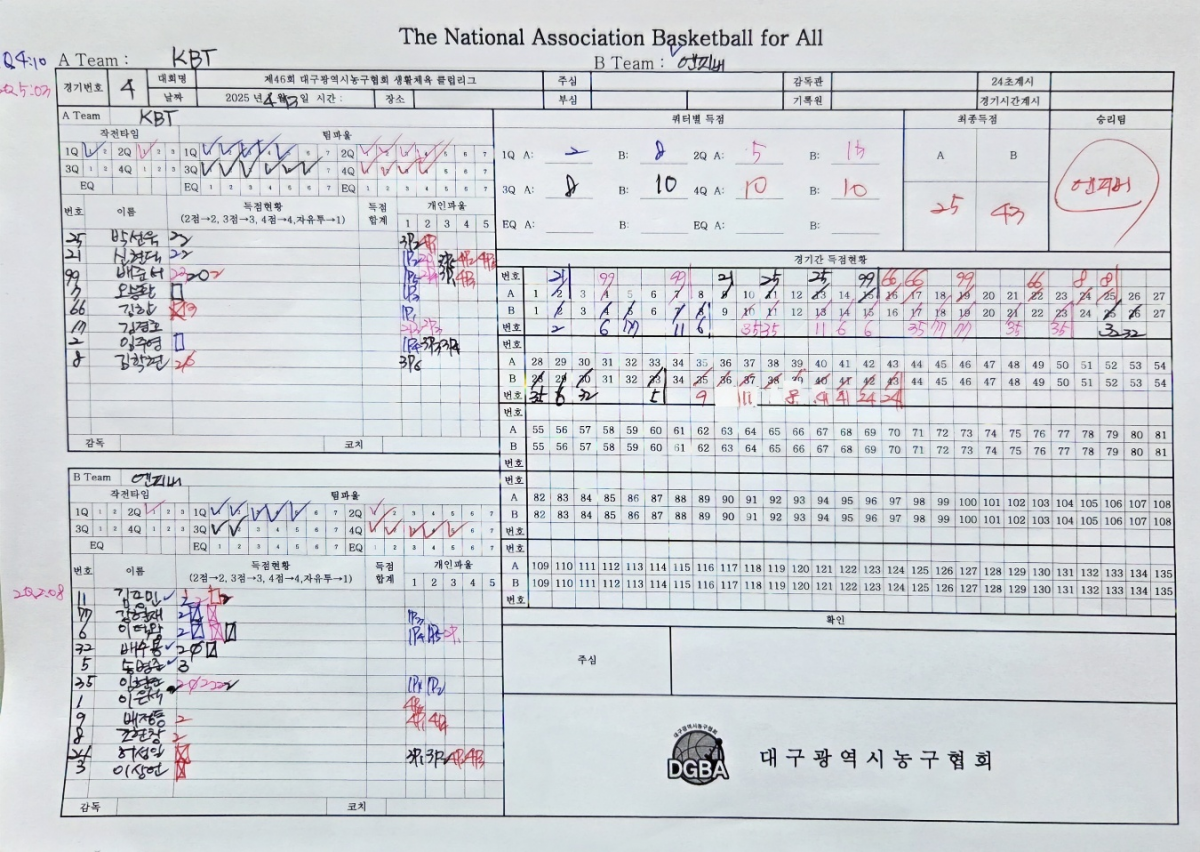 The National Association Basketball for All
A Team : KBT B Team : 엔피버
경기번호 4 대회명 제46회 대구광역시농구협회 생활체육 클럽리그 주심 감독관 24초계시
날짜 2025 년 4월 13일 시간 : 장소 부심 기록원 경기시간계시
A Team KBT
작전타임 팀파울
1Q 1 2 2Q 1 2 3 1Q 1 2 3 4 5 6 7 2Q 1 2 3 4 5 6 7
3Q 1 2 4Q 1 2 3 3Q 1 2 3 4 5 6 7 4Q 1 2 3 4 5 6 7
EQ EQ 1 2 3 4 5 6 7 EQ 1 2 3 4 5 6 7
번호 이름 득점현황 득점합계 개인파울
(2점→2, 3점→3, 4점→4,자유투→1) 1 2 3 4 5
25 박선욱 22
21 22
99 배준서
7
66 김환
77 김경호
2 임주영
8 김학견
감독 코치
쿼터별 득점 최종득점 승리팀
1Q A: 2 B: 8 2Q A: 5 B: 15
3Q A: 8 B: 10 4Q A: 10 B: 10
EQ A: B: EQ A: B:
A B
25 43
엔피버
경기간 득점현황
번호 21 99 99 21 25 25 99 66 66 99 66 8 8
A 1 2 3 4 5 6 7 8 9 10 11 12 13 14 15 16 17 18 19 20 21 22 23 24 25 26 27
B 1 2 3 4 5 6 7 8 9 10 11 12 13 14 15 16 17 18 19 20 21 22 23 24 25 26 27
번호 2 6 77 11 6 35 35 11 6 6 35 77 77 35 35 32 32
번호
A 28 29 30 31 32 33 34 35 36 37 38 39 40 41 42 43 44 45 46 47 48 49 50 51 52 53 54
B 28 29 30 31 32 33 34 35 36 37 38 39 40 41 42 43 44 45 46 47 48 49 50 51 52 53 54
번호 35 6 32 5 9 11 8 41 24 24
번호
A 55 56 57 58 59 60 61 62 63 64 65 66 67 68 69 70 71 72 73 74 75 76 77 78 79 80 81
B 55 56 57 58 59 60 61 62 63 64 65 66 67 68 69 70 71 72 73 74 75 76 77 78 79 80 81
번호
번호
A 82 83 84 85 86 87 88 89 90 91 92 93 94 95 96 97 98 99 100 101 102 103 104 105 106 107 108
B 82 83 84 85 86 87 88 89 90 91 92 93 94 95 96 97 98 99 100 101 102 103 104 105 106 107 108
번호
번호
A 109 110 111 112 113 114 115 116 117 118 119 120 121 122 123 124 125 126 127 128 129 130 131 132 133 134 135
B 109 110 111 112 113 114 115 116 117 118 119 120 121 122 123 124 125 126 127 128 129 130 131 132 133 134 135
번호
확인
주심
B Team 엔피버
작전타임 팀파울
1Q 1 2 2Q 1 2 3 1Q 1 2 3 4 5 6 7 2Q 1 2 3 4 5 6 7
3Q 1 2 4Q 1 2 3 3Q 1 2 3 4 5 6 7 4Q 1 2 3 4 5 6 7
EQ EQ 1 2 3 4 5 6 7 EQ 1 2 3 4 5 6 7
번호 이름 득점현황 득점합계 개인파울
(2점→2, 3점→3, 4점→4,자유투→1) 1 2 3 4 5
11
77 김형재
6
32 배수용
5 3
35
1 이은석
9 배정동 2
8 조현창 2
허성일
3 이상언
감독 코치
대구광역시농구협회
DGBA
대구광역시농구협회